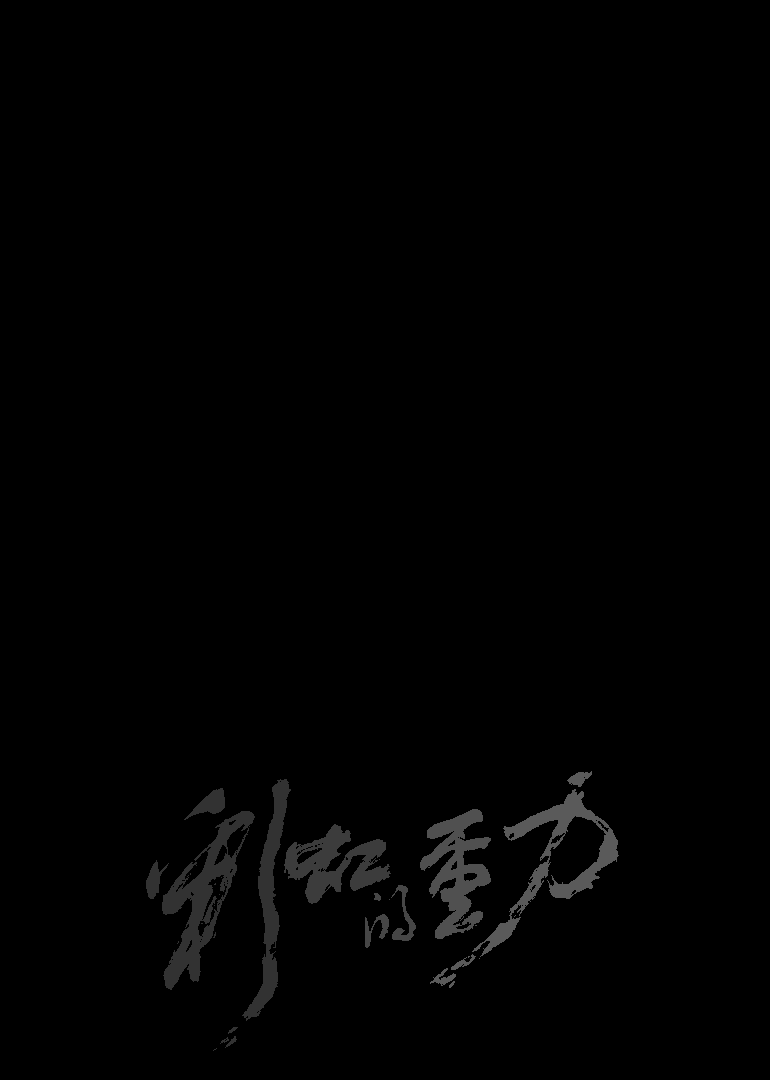 彩虹的動力